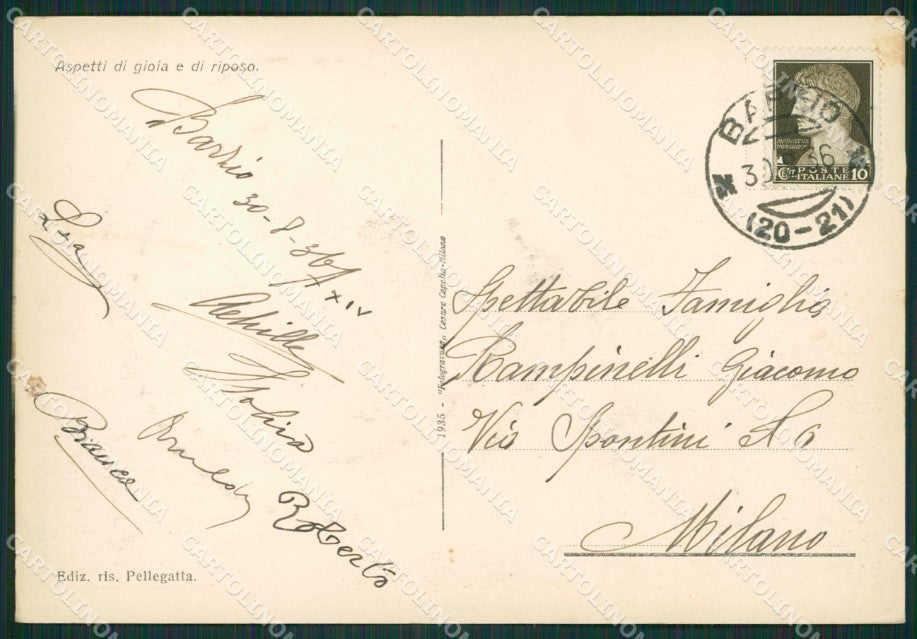 Aspetti di gioia e di riposo.
Barzio 30-8-36/XIV
Lea
Achille
Bianca
Roberto
Ediz. ris. Pellegatta.
1935 - "Fotogravure" Cesare Capello-Milano
BARZIO
30. 8. 36
(20-21)
AVGVSTVS
CENT. 10
POSTE
ITALIANE
Spettabile Famiglia
Rampinelli Giacomo
Via Spontini N 6
Milano
CARTOLINOMANIA